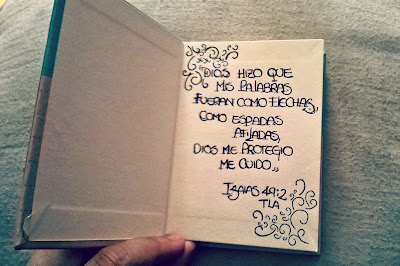 "DIOS HIZO QUE
MIS PALABRAS
FUERAN COMO FLECHAS,
COMO ESPADAS
AFILADAS,
DIOS ME PROTEGIO
ME CUIDO"
ISAIAS 49:2
TLA